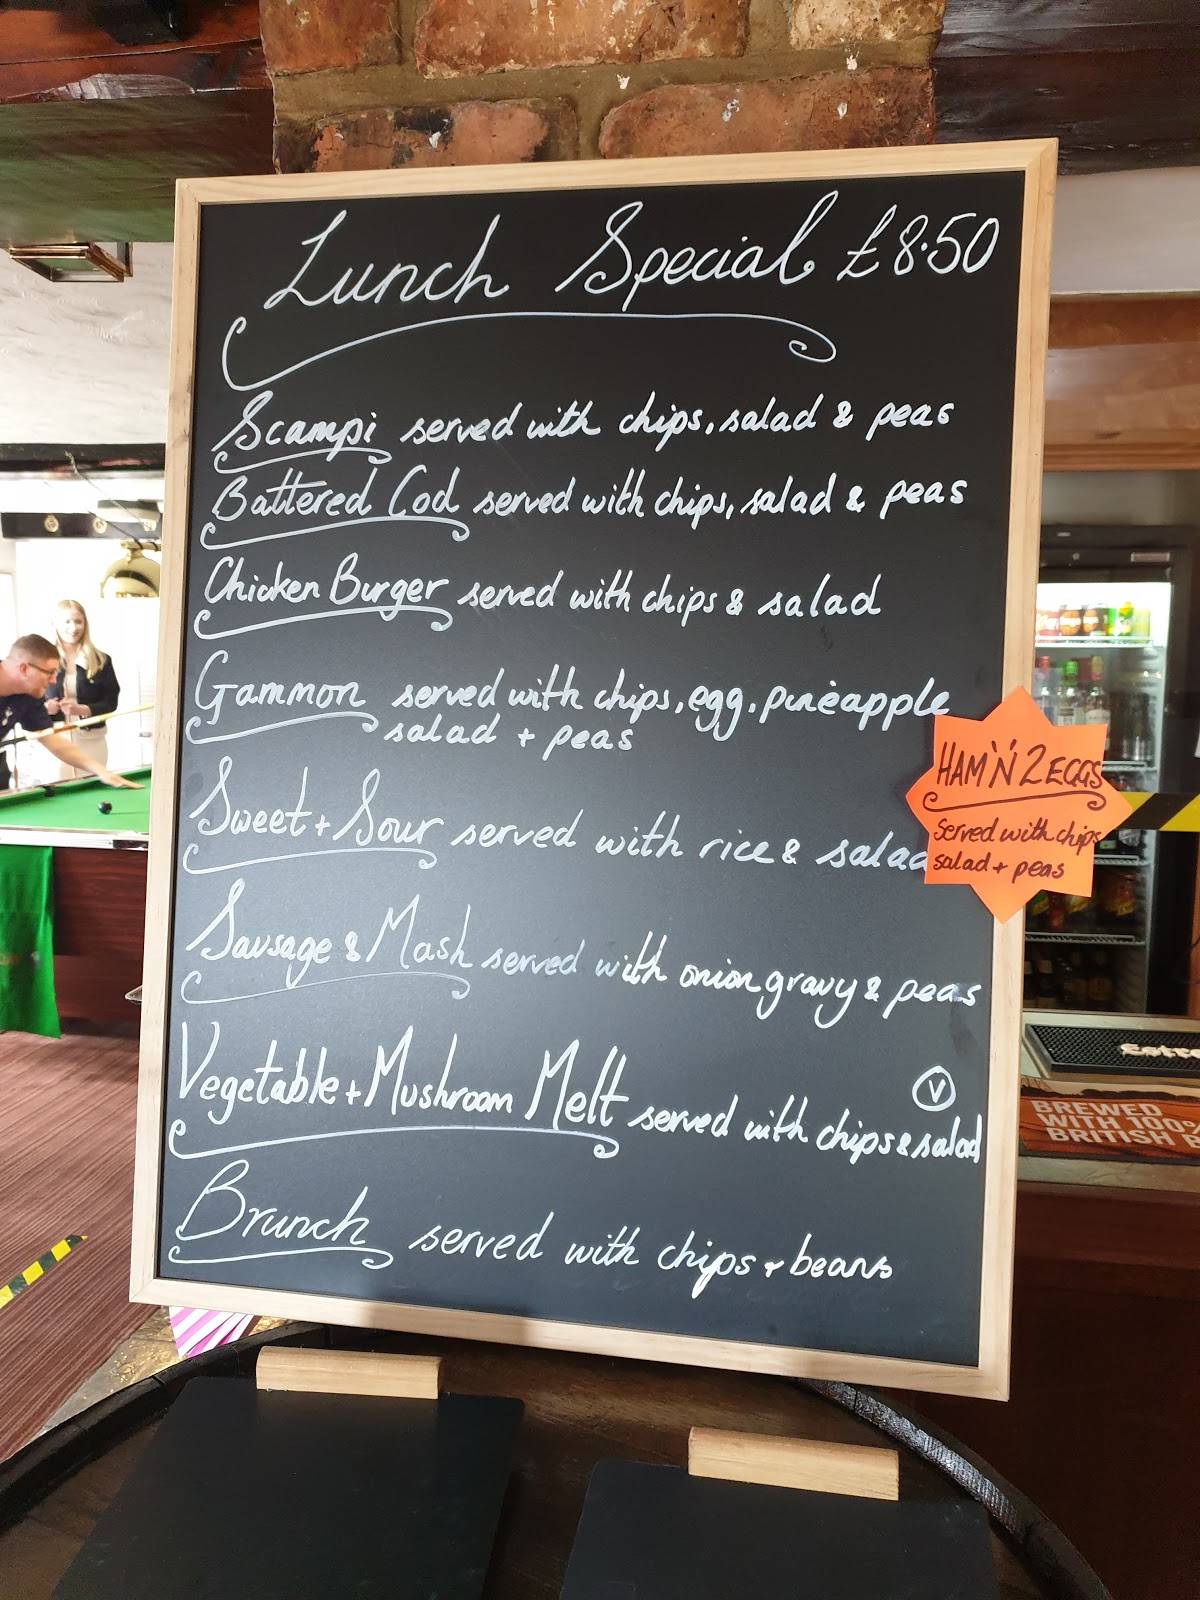 Lunch Special £8.50
Scampi served with chips, salad & peas
Battered Cod served with chips, salad & peas
Chicken Burger served with chips & salad
Gammon served with chips, egg, pineapple
salad + peas
Sweet + Sour served with rice & salad
HAM 'N' 2 EGGS
Served with chips
salad + peas
Sausage & Mash served with onion gravy & peas
Vegetable + Mushroom Melt served with chips & salad
V
Brunch served with chips + beans
BREWED
WITH 100%
BRITISH